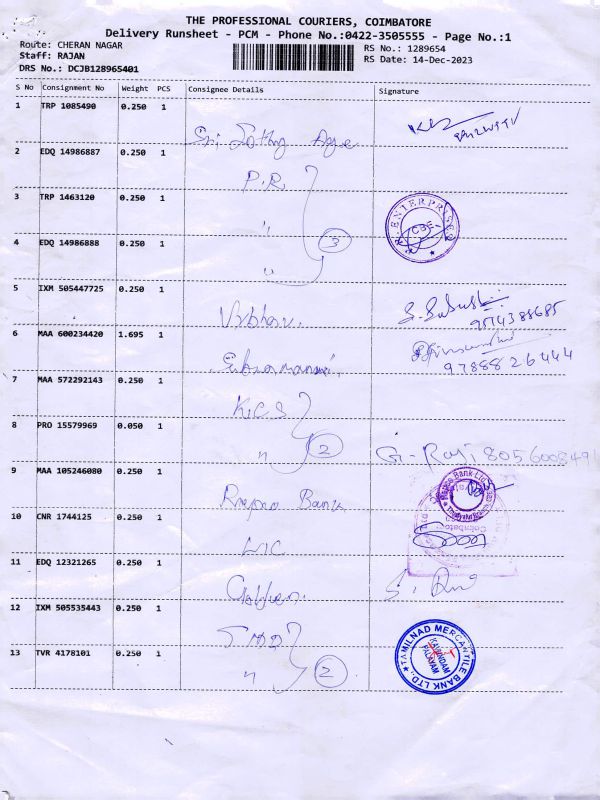 THE PROFESSIONAL COURIERS, COIMBATORE
Delivery Runsheet - PCM - Phone No.:0422-3505555 - Page No.:1
Route: CHERAN NAGAR RS No.: 1289654
Staff: RAJAN RS Date: 14-Dec-2023
DRS No.: DCJB128965401
S No Consignment No Weight PCS Consignee Details Signature
1 TRP 1085490 0.250 1
2 EDQ 14986887 0.250 1 P.R.
3 TRP 1463120 0.250 1 "
R. ENTERPRISES CBE
4 EDQ 14986888 0.250 1 " 3
5 IXM 505447725 0.250 1
9514388685
6 MAA 600234420 1.695 1
9788826444
7 MAA 572292143 0.250 1 K.C.S
8 PRO 15579969 0.050 1 " 2 G. Raji 8056008491
9 MAA 105246080 0.250 1 Bank
Bank Ltd
10 CNR 1744125 0.250 1 LIC
Coimbatore
11 EDQ 12321265 0.250 1
12 IXM 505535443 0.250 1 TMB
13 TVR 4178101 0.250 1 " 2
TAMILNAD MERCANTILE BANK LTD.
KAVUNDAM PALAYAM